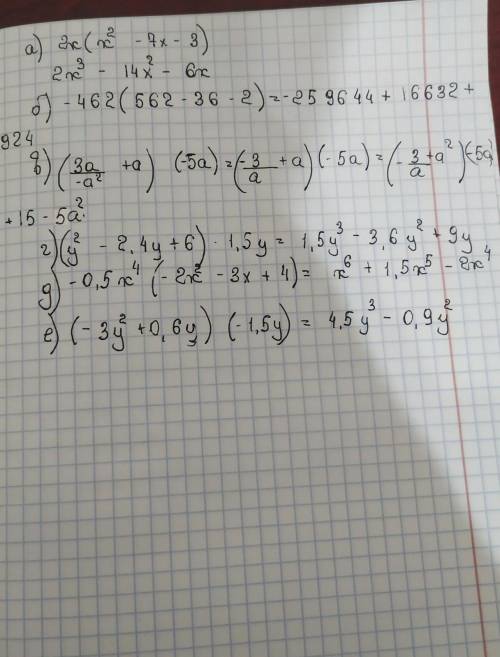 а) 2x(x² - 7x - 3)
2x³ - 14x² - 6x
б) -462(562 - 36 - 2) = -259644 + 16632 +
924
в) (3a/-a² + a) (-5a) = (-3/a + a) (-5a) = (-3+a²/a)(-5a)
+15 - 5a².
г) (y² - 2,4y + 6) · 1,5y = 1,5y³ - 3,6y² + 9y
д) -0,5x⁴ (-2x² - 3x + 4) = x⁶ + 1,5x⁵ - 2x⁴
е) (-3y² + 0,6y) (-1,5y) = 4,5y³ - 0,9y²